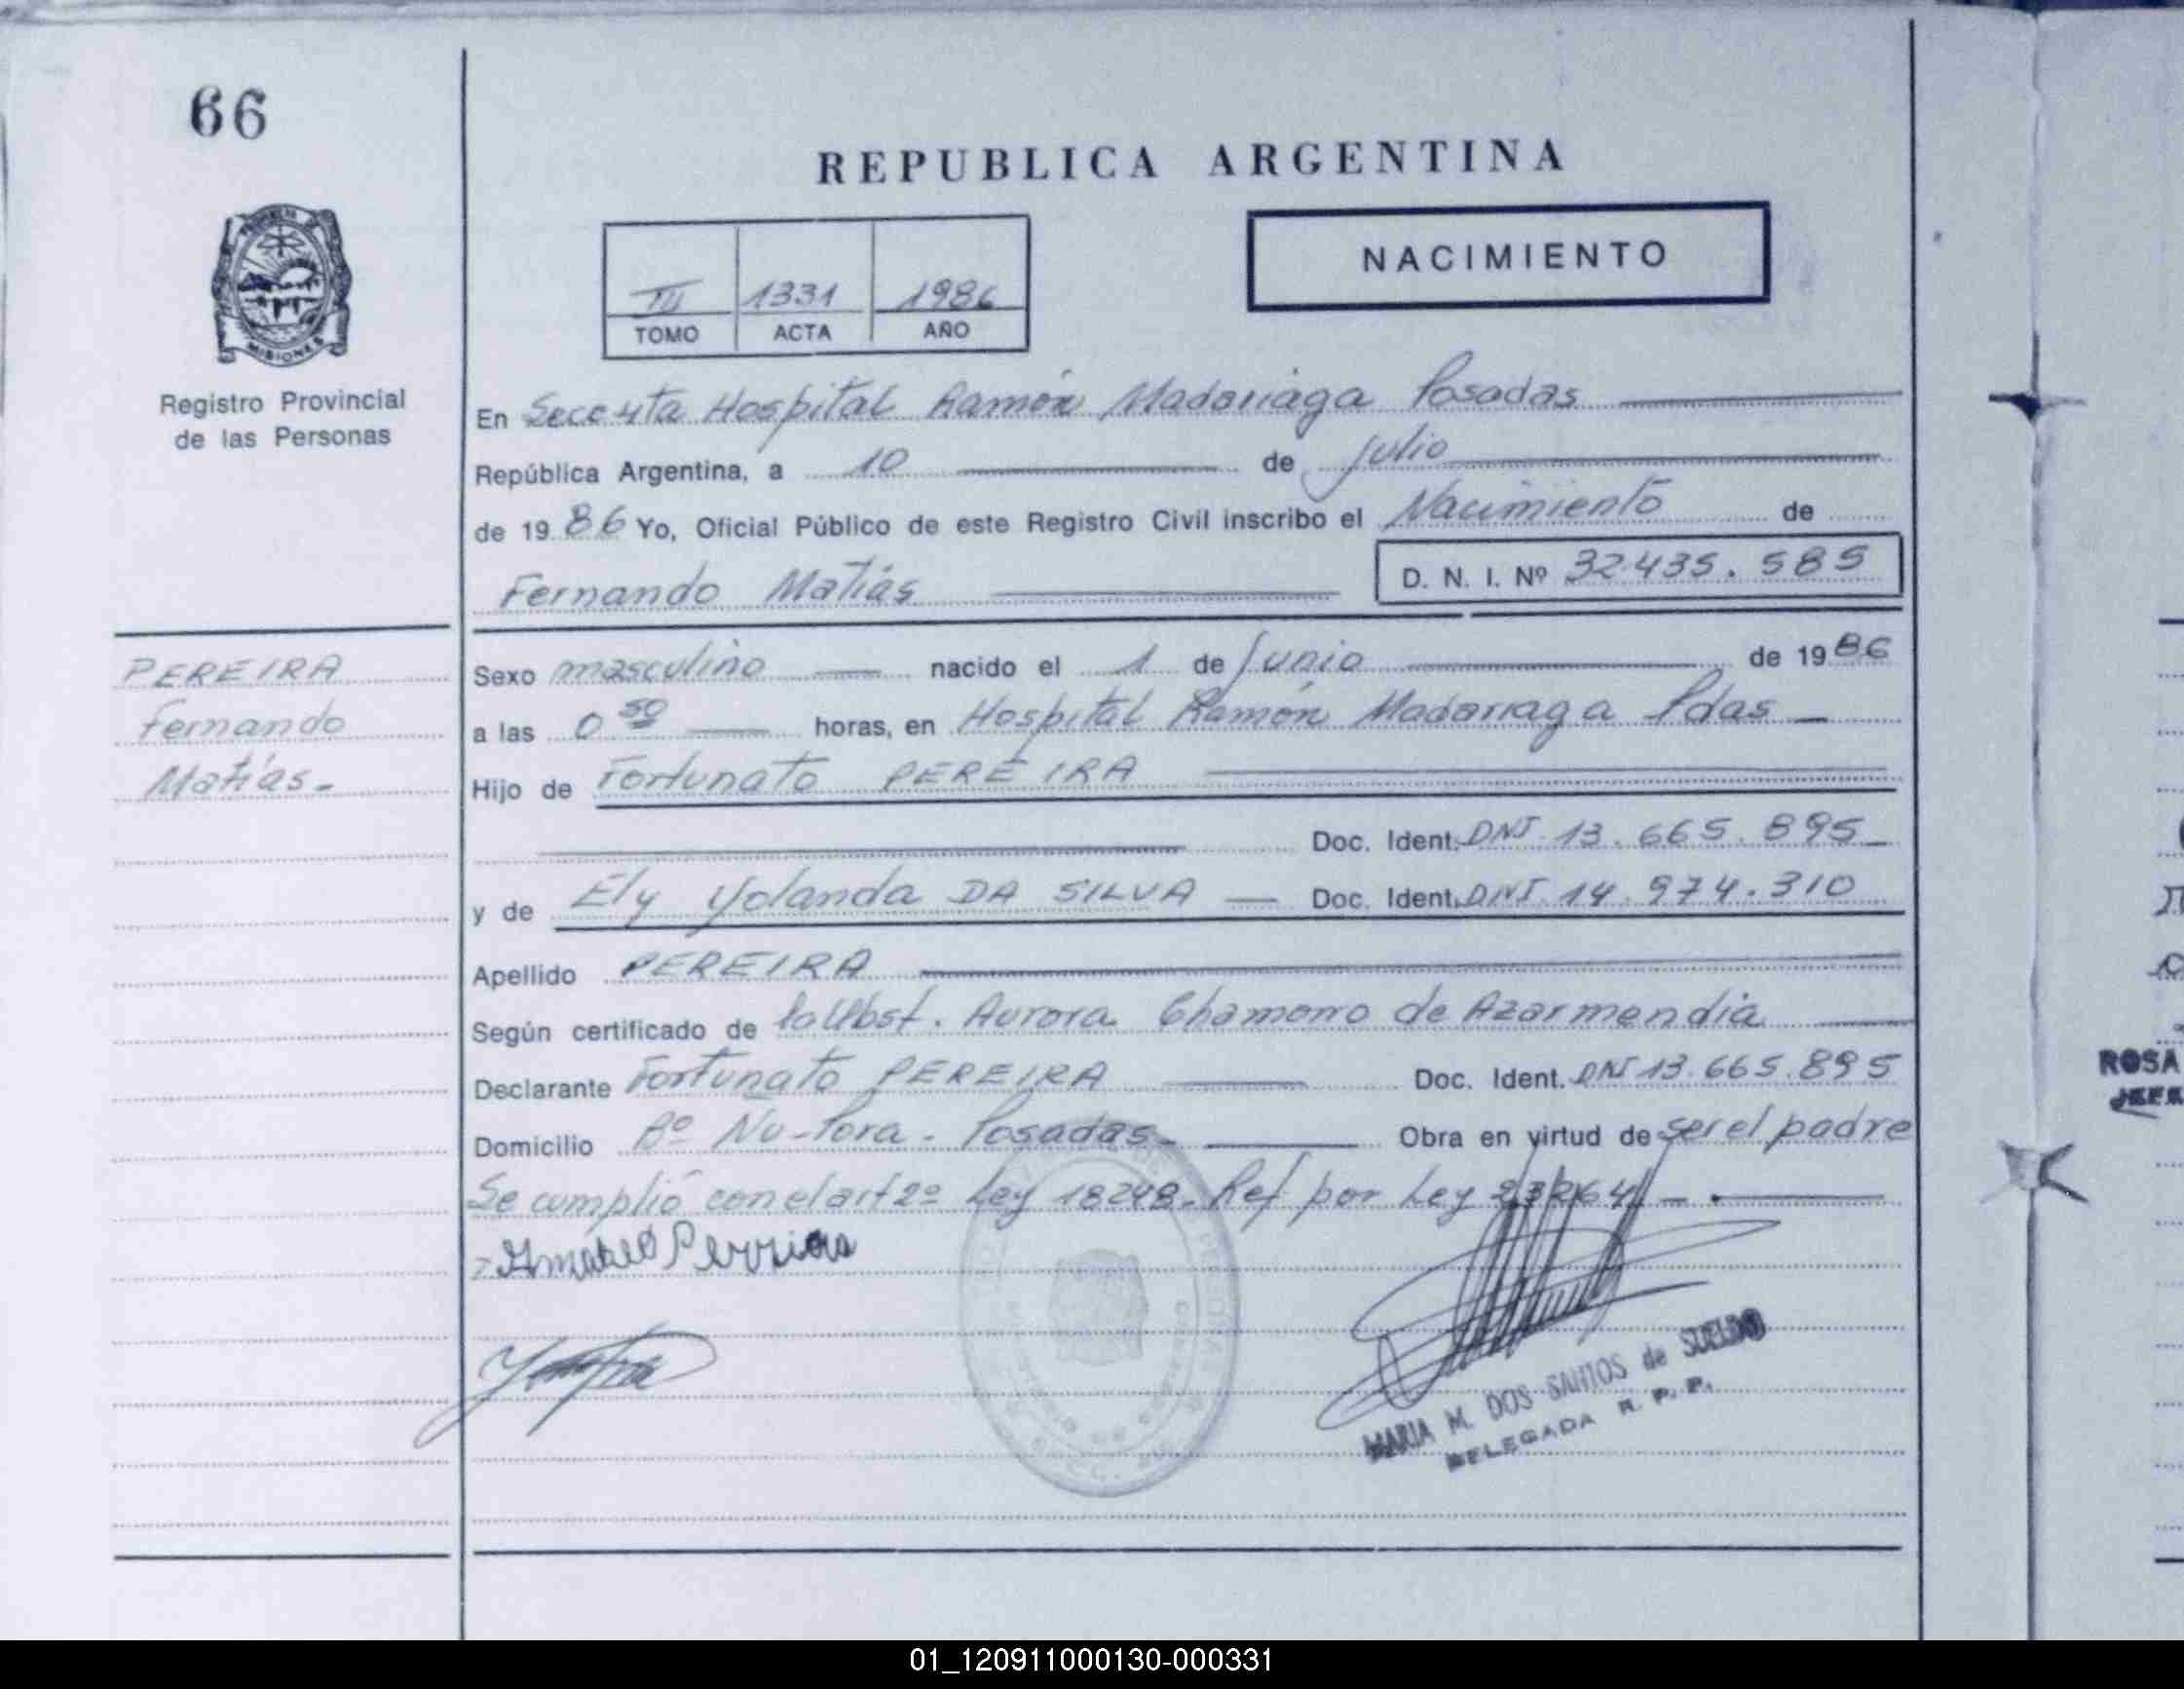 66
REPUBLICA ARGENTINA
NACIMIENTO
III 1331 1986
TOMO ACTA AÑO
MISIONES
Registro Provincial
de las Personas
En Secc 4ta Hospital Ramón Madariaga Posadas
República Argentina, a 10 de julio
de 19 86 Yo, Oficial Público de este Registro Civil inscribo el Nacimiento de
Fernando Matías D. N. I. Nº 32.435.585
PEREIRA
Fernando
Matías-
Sexo masculino nacido el 1 de Junio de 1986
a las 0 50 horas, en Hospital Ramón Madariaga Pdas
Hijo de Fortunato PEREIRA
Doc. Ident. DNI 13.665.895
y de Ely Yolanda DA SILVA Doc. Ident. DNI 14.974.310
Apellido PEREIRA
Según certificado de la Obst. Aurora Chamorro de Azarmendia
Declarante Fortunato PEREIRA Doc. Ident. DNI 13.665.895
Domicilio Bº Ñu-Pora - Posadas- Obra en virtud de ser el padre
Se cumplió con el art 2º Ley 18248- Ref por Ley 23264-
MARIA M. DOS SANTOS de SUELDO
DELEGADA R. P. P.
ROSA
01_120911000130-000331